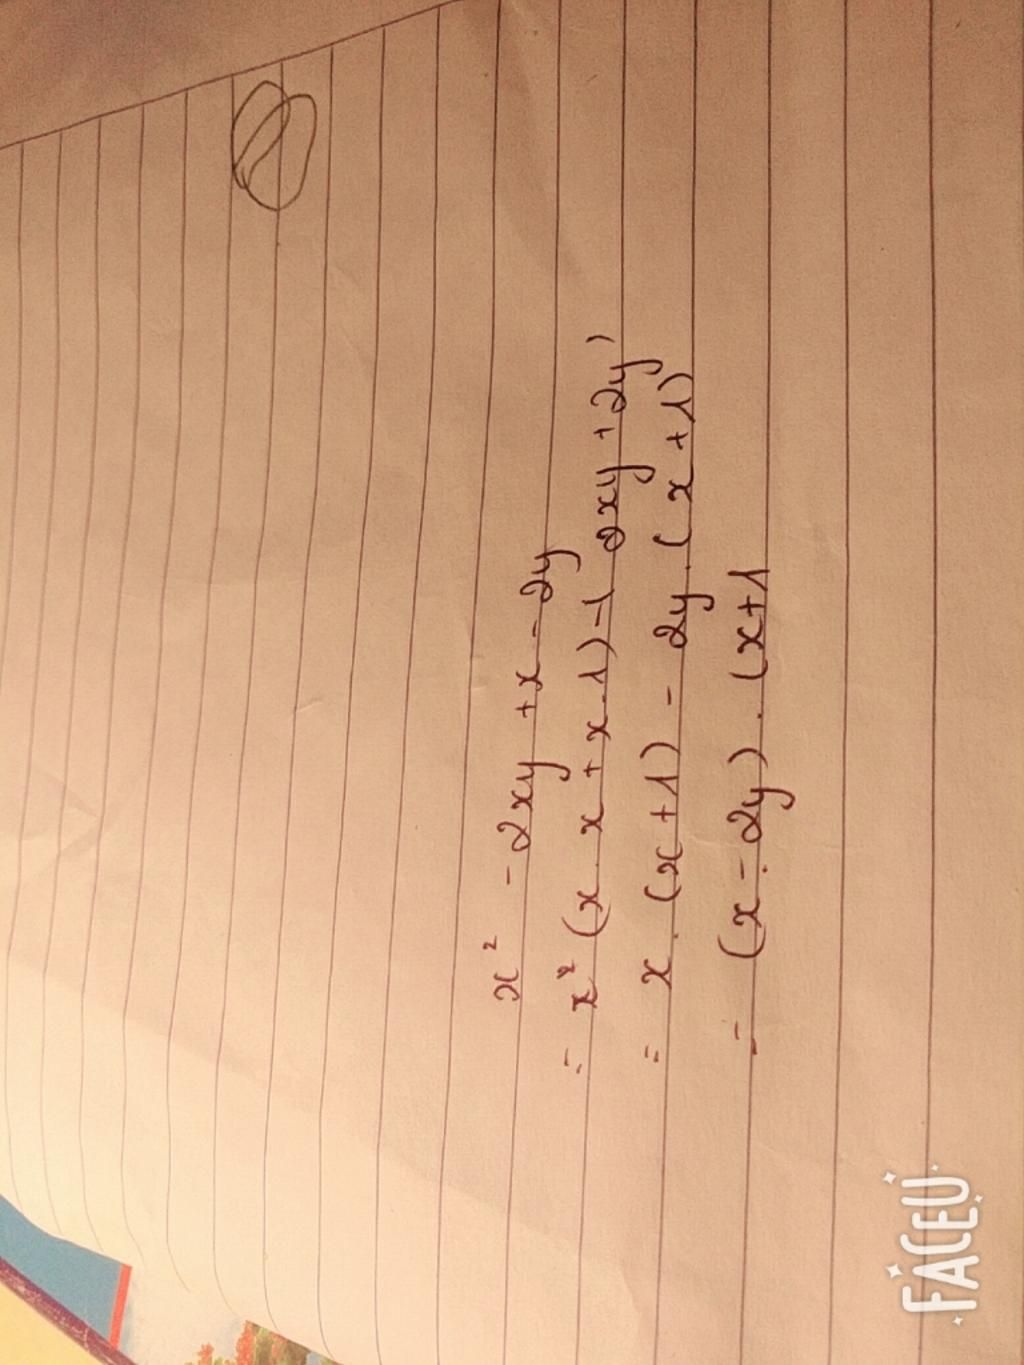 x² - 2xy + x - 2y
= x² (x . x + x . 1) - ( 2xy + 2y )
= x . (x + 1) - 2y . ( x + 1)
= (x - 2y) . (x + 1
FACEU